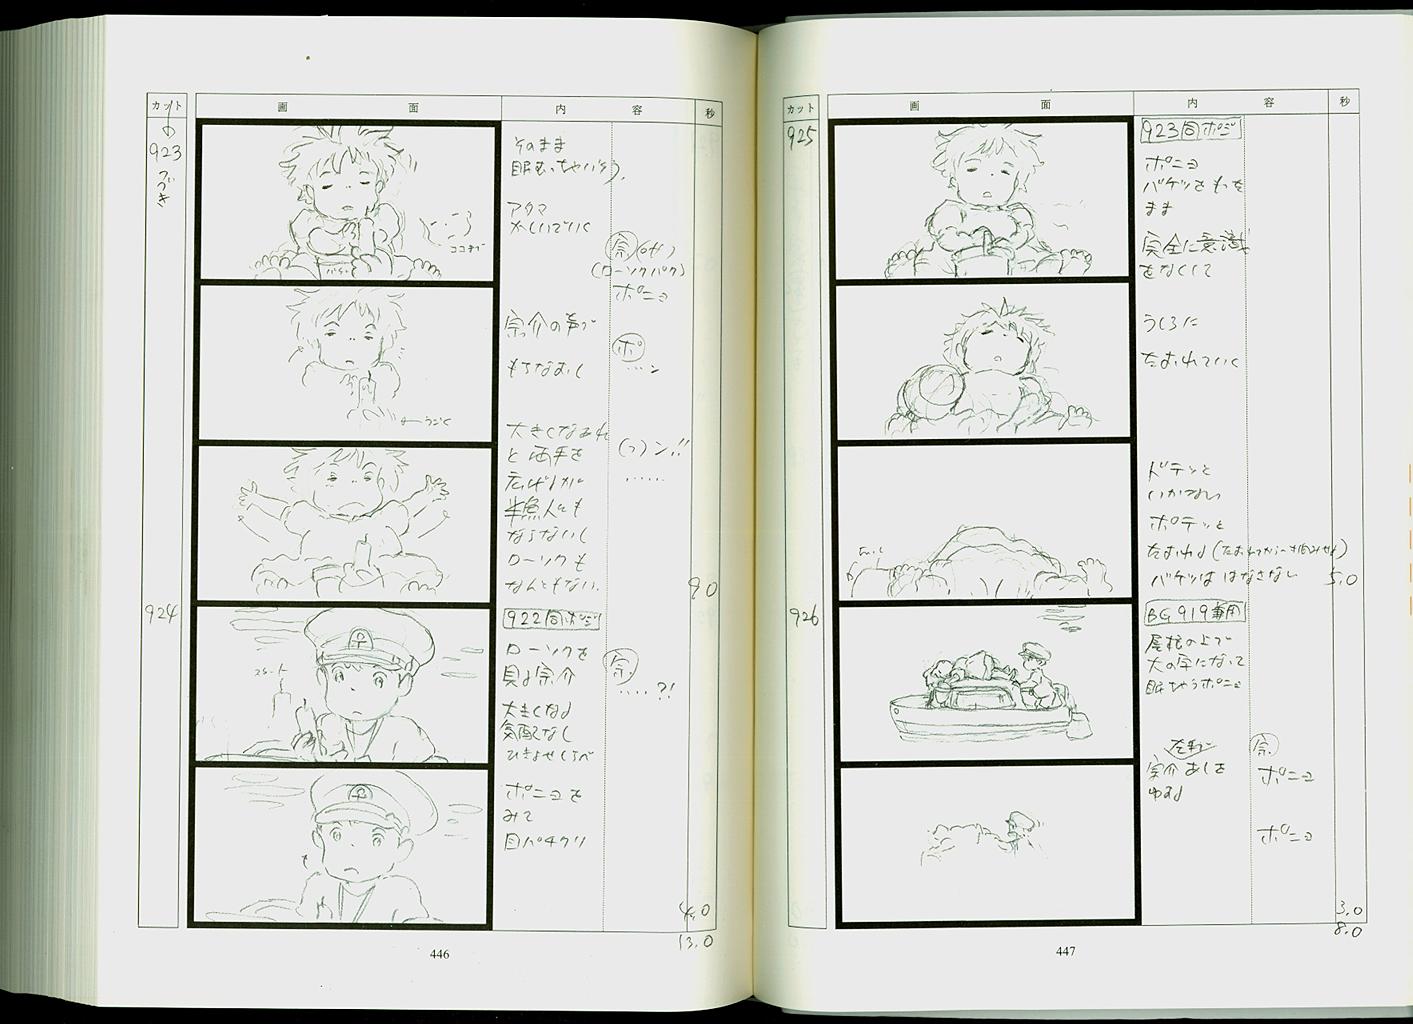 カット
画面
内容
秒
の
923
つづき
そのまま
眠むっちゃいそう.
アタマ
かしいでいく
ココまで
宗 (off)
(ローソクパク)
ポニョ
宗介の声で
ポ
もちなおし
‥‥ン
うごく
大きくなあれ
(っ)ン!!
と両手を
広げるが
‥‥‥
半魚人にも
ならないし
ローソクも
なんともない.
9.0
924
922同ポジ
ローソクを
宗
見る宗介
‥‥?!
大きくなる
気配なし
ポニョを
みて
目パチクリ
4.0
13.0
446
カット
画面
内容
秒
925
923同ポジ
ポニョ
バケツをもった
まま
完全に意識
をなくして
うしろに
たおれていく
ドテッと
いかない
ポテッと
たおれる
バケツは はなさない
5.0
926
BG919兼用
屋根の上で
大の字になって
眠っちゃうポニョ
宗
宗介 あしを
ポニョ
ゆする
ポニョ
3.0
8.0
447